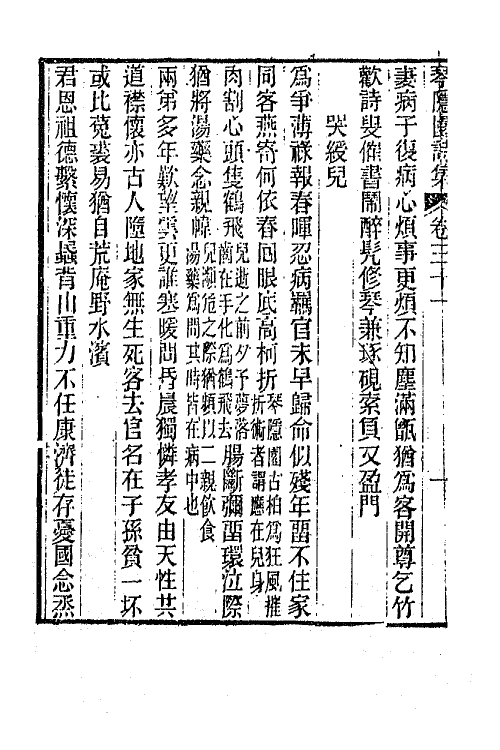 琴隱園詩集卷三十一
妻病子復病心煩事更煩不知塵滿甑猶爲客開尊乞竹
歡詩叟催書鬧醉髡修琴兼琢硯索負又盈門
哭綬兒
爲爭薄祿報春暉忍病羈官未早歸命似殘年留不住家
同客燕寄何依春回眼底高柯折琴隱園古柏爲狂風摧折術者謂應在兒身腸斷彌留環泣際
肉割心頭隻鶴飛兒逝之前夕予夢落齒在手化爲鶴飛去
猶將湯藥念親幃兒瀕危之際猶頻以二親飲食湯藥爲問其時皆在病中也
兩弟多年歎望雲更誰寒暖問昏晨獨憐孝友由天性共
道襟懷亦古人隨地家無生死客去官名在子孫貧一坏
或比菟裘易猶自荒庵野水濱
君恩祖德繫懷深蝨背山重力不任康濟徒存憂國念烝